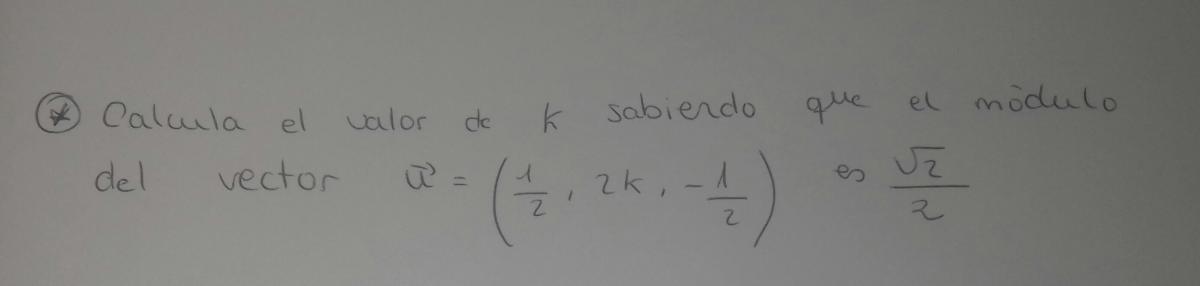 * Calcula el valor de k sabiendo que el mòdulo
del vector u⃗ = (1/2, 2k, -1/2) es √2/2